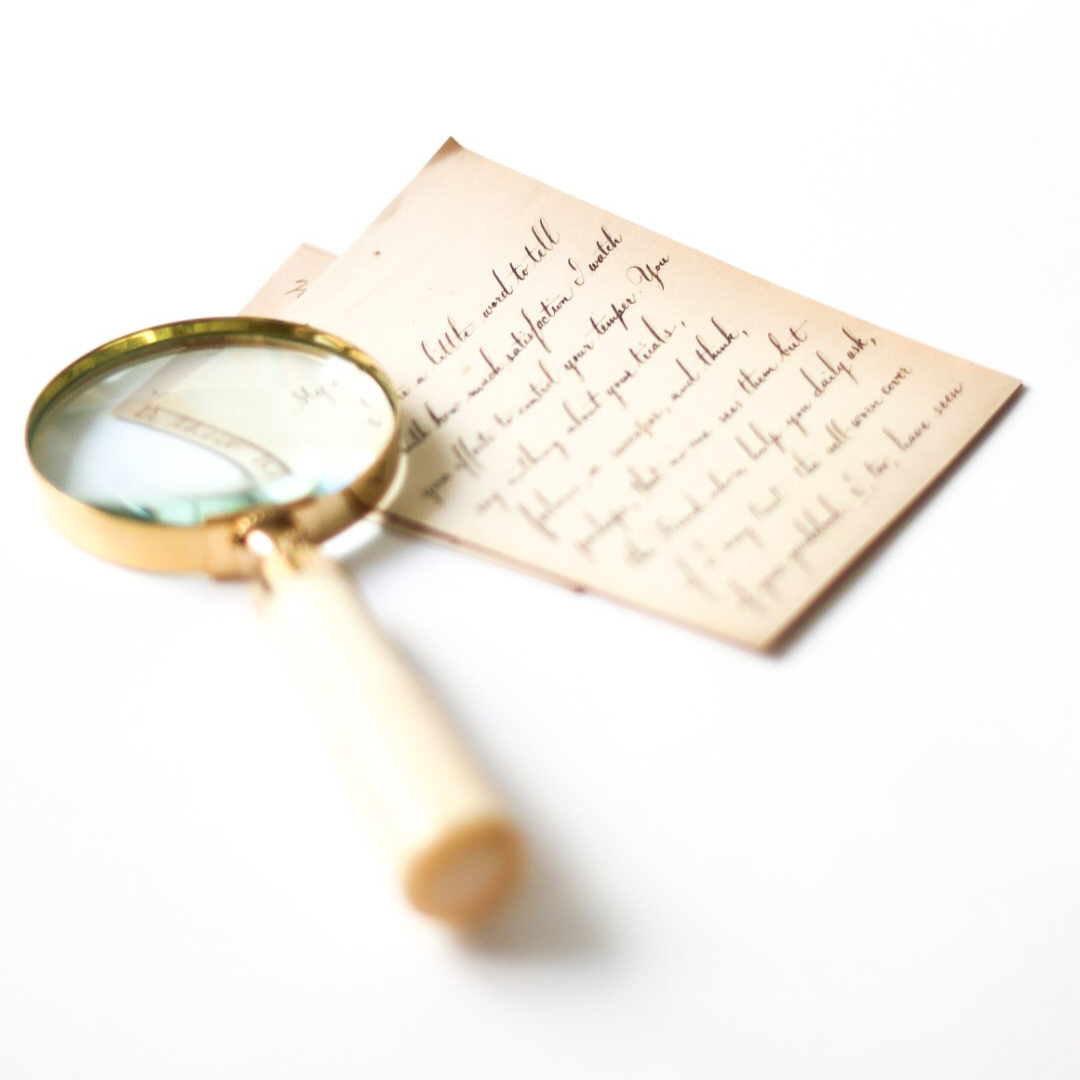 a little word to tell
how much satisfaction I watch
your efforts to control your temper. You
say nothing about your trials,
failures, or successes, and think,
perhaps, that no one sees them but
the Friend whose help you daily ask,
if I may trust the well-worn cover
of your guidebook. I, too, have seen
My